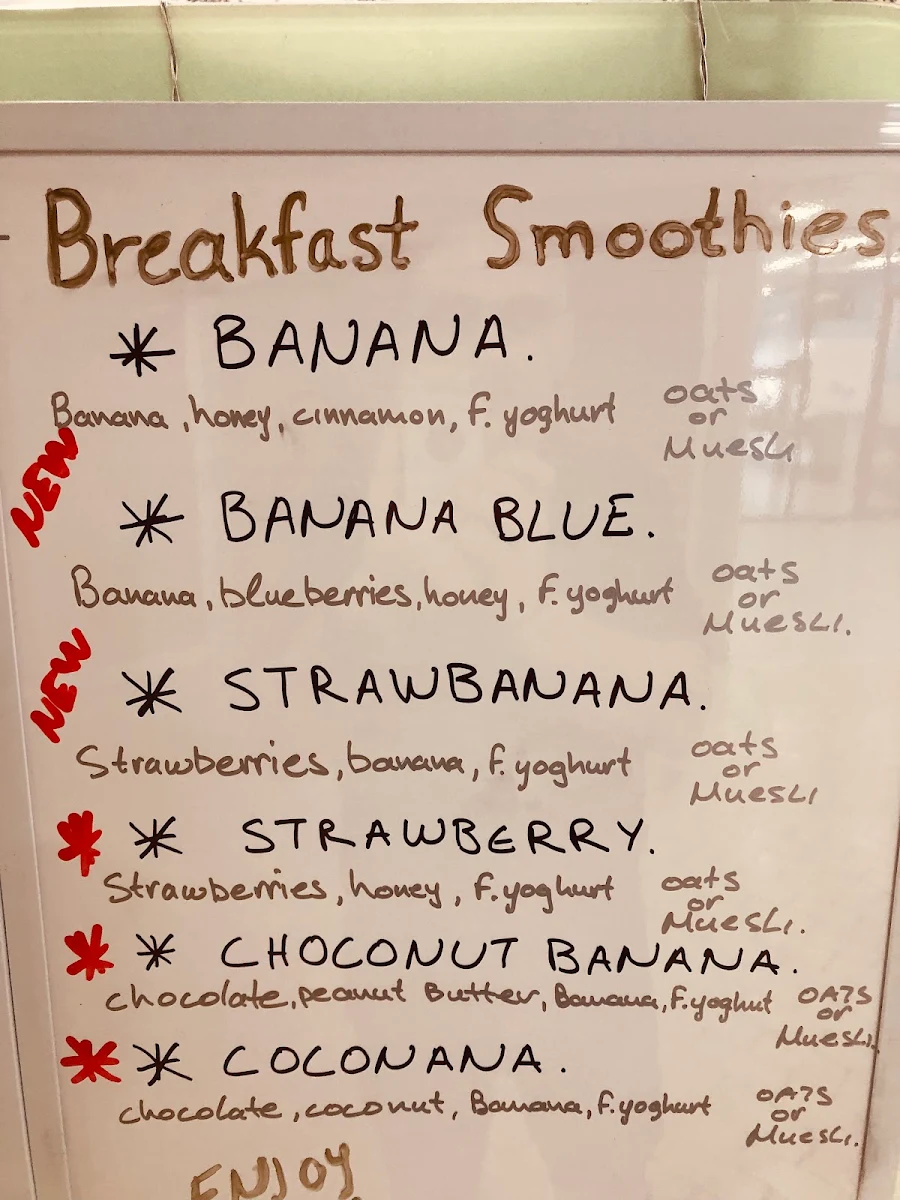 Breakfast Smoothies
* BANANA.
Banana, honey, cinnamon, F. yoghurt oats or Muesli
NEW
* BANANA BLUE.
Banana, blueberries, honey, F. yoghurt oats or Muesli.
NEW
* STRAWBANANA.
Strawberries, banana, F. yoghurt oats or Muesli
* * STRAWBERRY.
Strawberries, honey, F. yoghurt oats or Muesli.
* * CHOCONUT BANANA.
chocolate, peanut Butter, Banana, F. yoghut OATS or Muesli.
* * COCONANA.
chocolate, coconut, Banana, F. yoghurt OATS or Muesli.
ENJOY